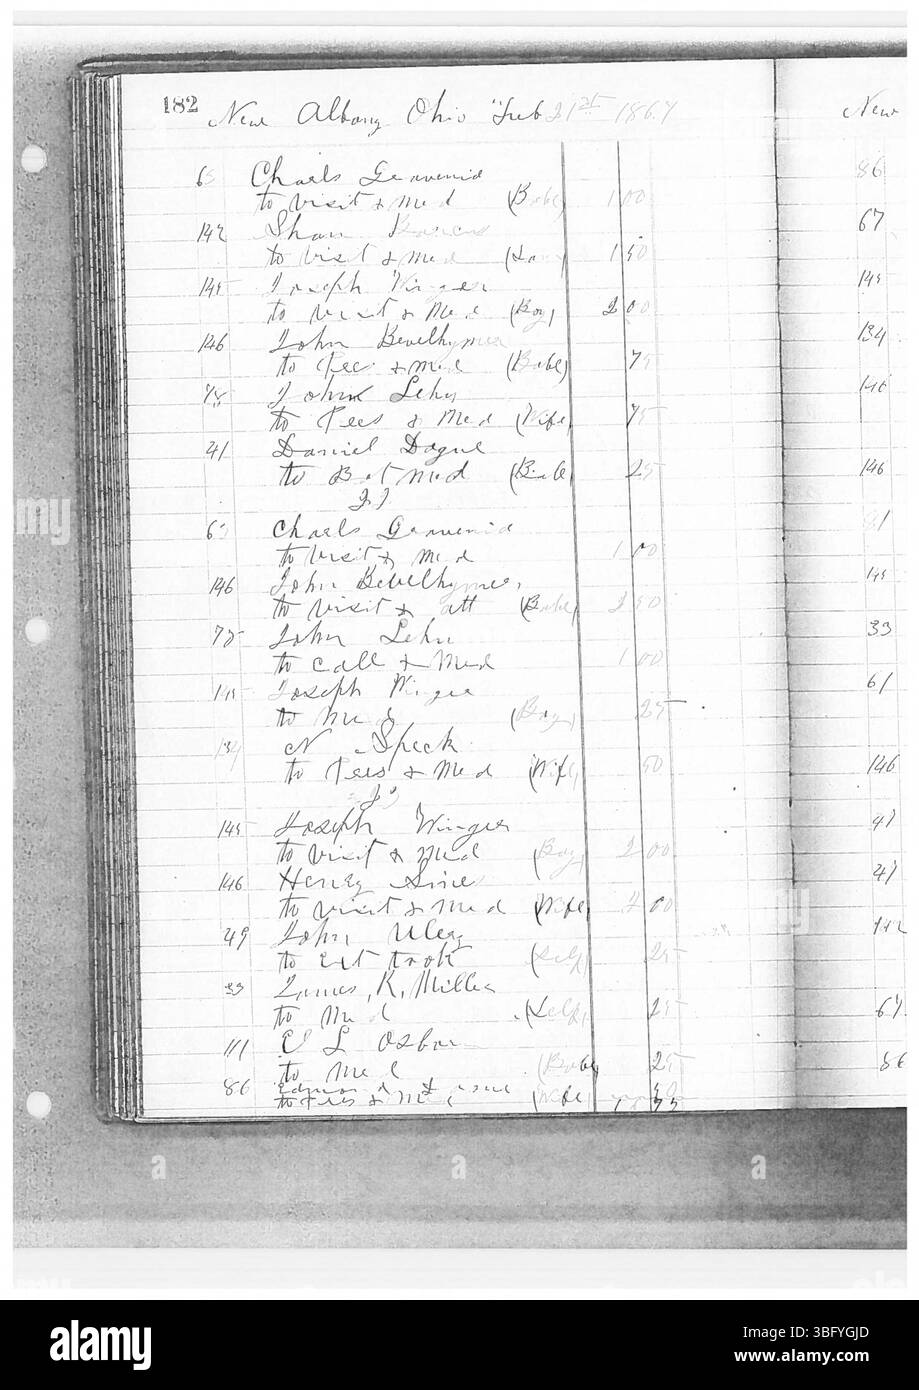 182
New Albany Ohio Feb 21st 1867
Charls Gravenid
to visit & Med (Babe) 1 00
142
to visit & Med 1 50
145 Joseph Winger
to visit & Med (Boy) 2 00
146 John Bevelhymer
to & Med (Babe) 75
John Lehn
to Prees & Med (Wife) 75
41 Daniel Dague
to Med (Babe) 25
Charls Gravenid
to visit & Med 1 00
146 John Bevelhymer
to visit & att (Babe) 2 50
John Lehn
to call & Med 1 00
145 Joseph Winger
to Med (Boy) 25
134 N Speck
to Prees & Med (Wife) 50
145 Joseph Winger
to visit & Med (Boy) 2 00
146 Henry Sines
to visit & Med (Wife) 00
49 John Ulery
to Ext tooth (Self) 25
33 James, R, Miller
to Med (Self) 25
111 L Osborn
to Med (Babe) 25
86
to Prees & Med (Wife)
New
86
67
145
134
146
146
81
145
33
61
146
41
41
142
67
86
a a a
alamy
Image ID: 3BFYGJD
www.alamy.com